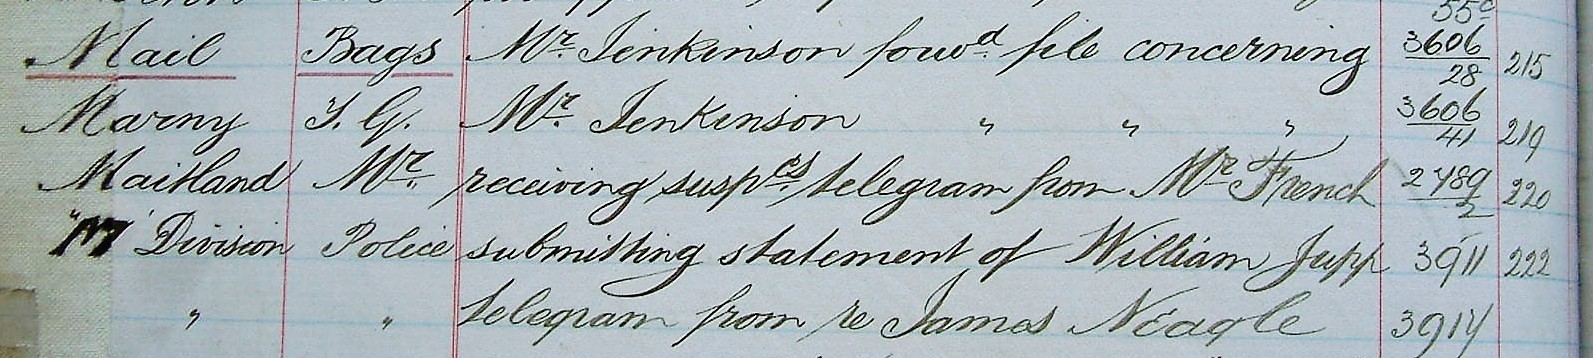 55c
Mail Bags Mr. Jenkinson fowd. file concerning 3606/28 215
Marny T. G. Mr. Jenkinson " " " 3606/41 219
Maitland Mr. receiving suspcs. telegram from Mr. French 2489/2 220
"M" Division Police submitting statement of William Jupp 3911 222
" " telegram from re James Neagle 3914